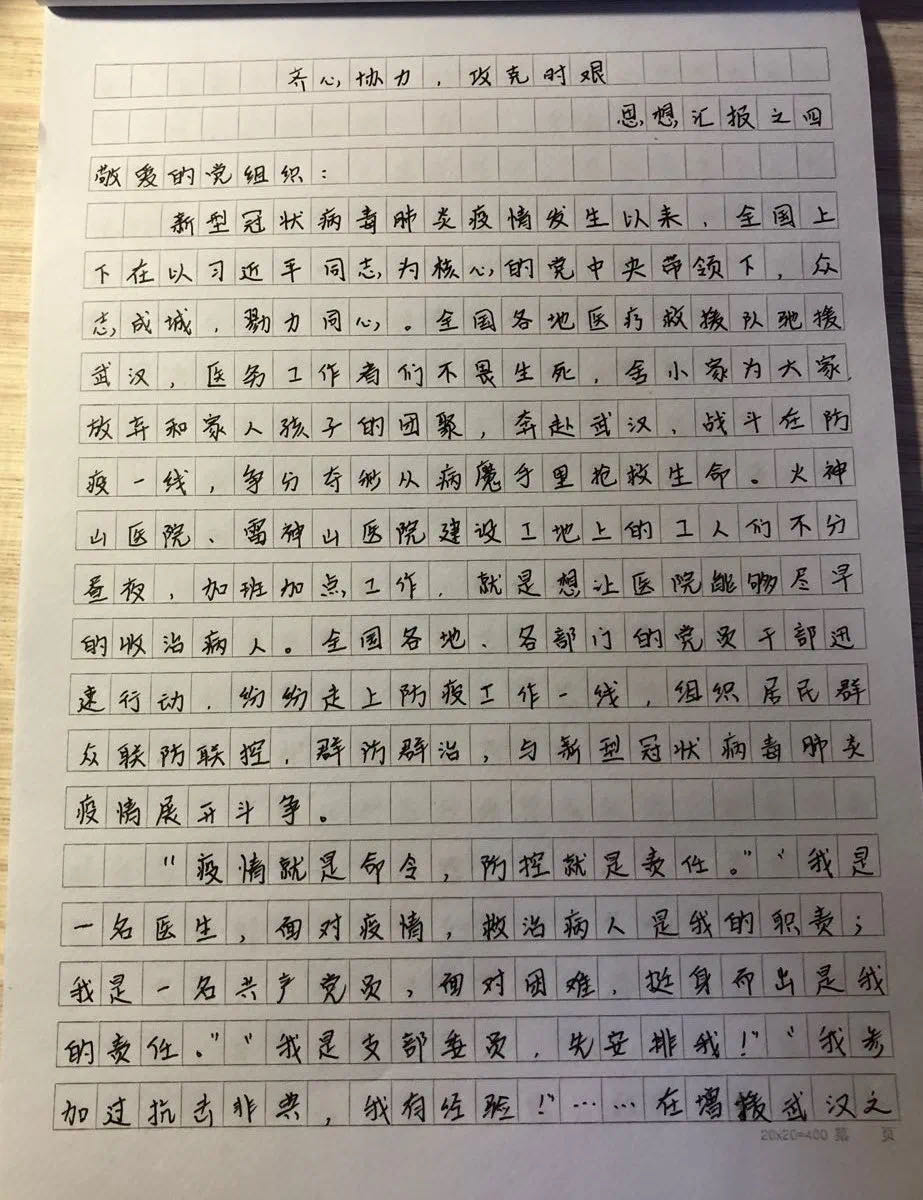 齐心协力，攻克时艰
思想汇报之四
敬爱的党组织：
新型冠状病毒肺炎疫情发生以来，全国上
下在以习近平同志为核心的党中央带领下，众
志成城，勠力同心。全国各地医疗救援队驰援
武汉，医务工作者们不畏生死，舍小家为大家，
放弃和家人孩子的团聚，奔赴武汉，战斗在防
疫一线，争分夺秒从病魔手里抢救生命。火神
山医院、雷神山医院建设工地上的工人们不分
昼夜，加班加点工作，就是想让医院能够尽早
的收治病人。全国各地、各部门的党员干部迅
速行动，纷纷走上防疫工作一线，组织居民群
众联防联控，群防群治，与新型冠状病毒肺炎
疫情展开斗争。
“疫情就是命令，防控就是责任。”“我是
一名医生，面对疫情，救治病人是我的职责；
我是一名共产党员，面对困难，挺身而出是我
的责任。”“我是支部委员，先安排我！”“我参
加过抗击非典，我有经验！”……在增援武汉文
20x20=400 第 页